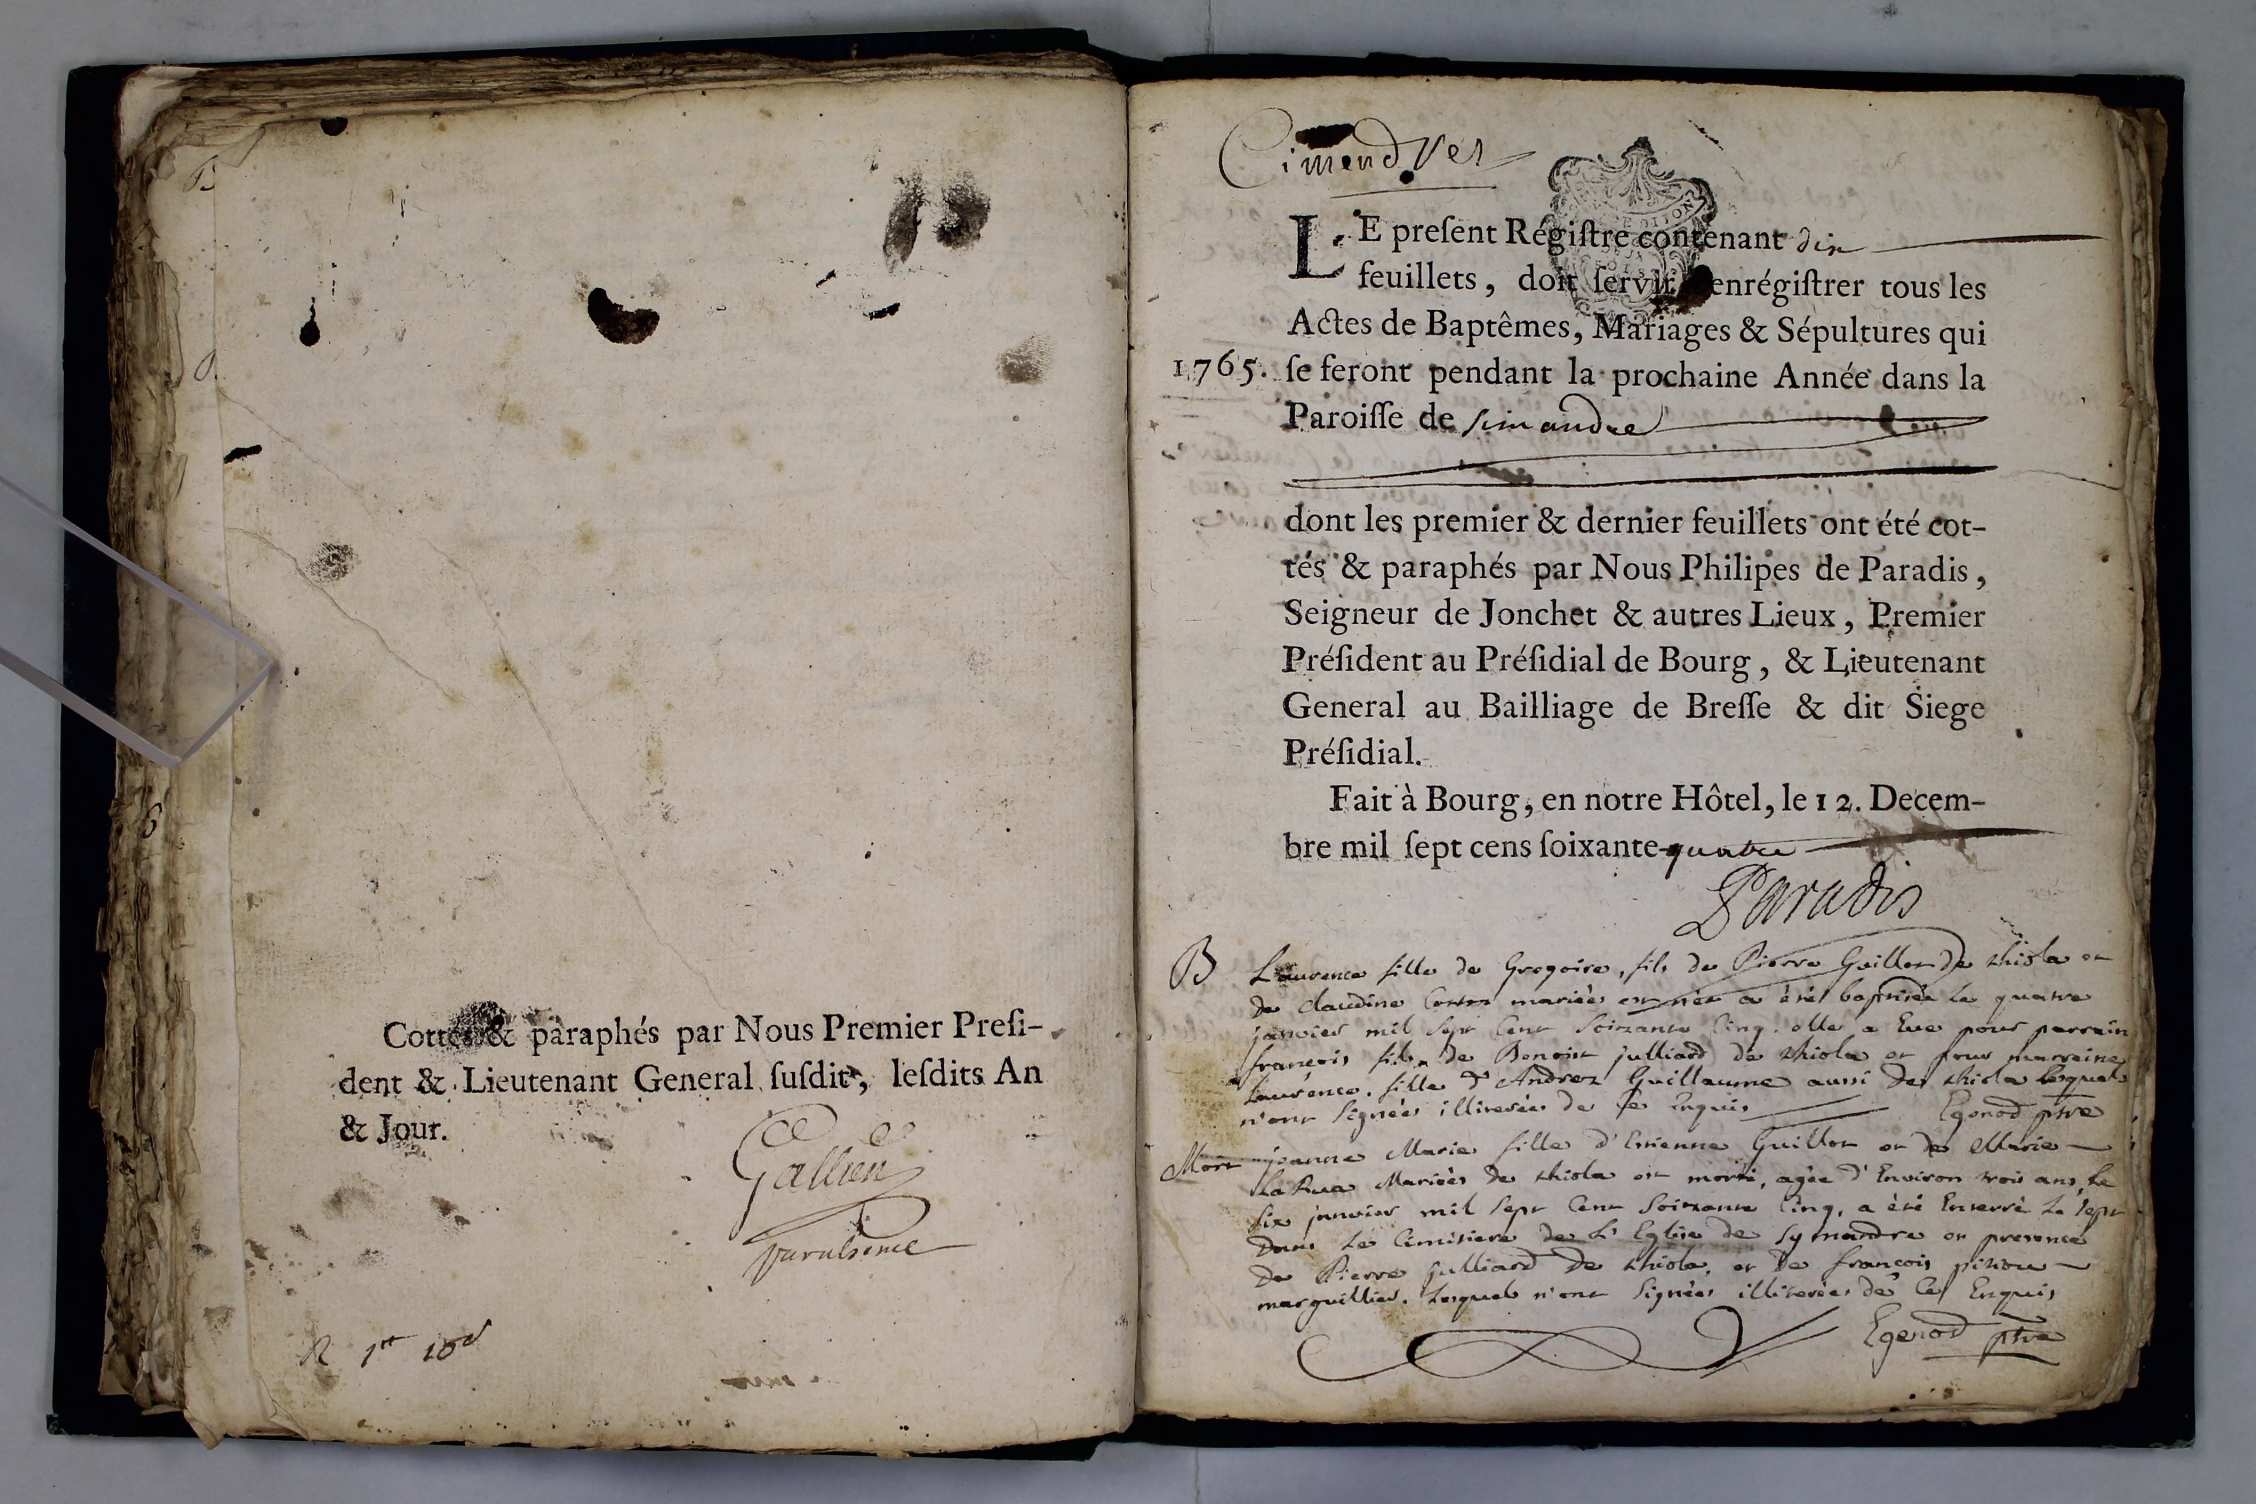 B
Cottés & paraphés par Nous Premier Presi-
dent & Lieutenant General susdit, lesdits An
& Jour.
Gallien
R 1tt 10d
Cimendres
LE present Régistre contenant dix
feuillets, doit servir enrégistrer tous les
Actes de Baptêmes, Mariages & Sépultures qui
1765. se feront pendant la prochaine Année dans la
Paroisse de simandre
dont les premier & dernier feuillets ont été cot-
tés & paraphés par Nous Philipes de Paradis,
Seigneur de Jonchet & autres Lieux, Premier
Président au Présidial de Bourg, & Lieutenant
General au Bailliage de Bresse & dit Siege
Présidial.
Fait à Bourg, en notre Hôtel, le 12. Decem-
bre mil sept cens soixante-quatre
Paradis
B Laurence fille de Gregoire, fils de Pierre Guillot de thiola et
de claudine mariées est née a èté baptisée le quatre
janvier mil sept Cent Soixante Cinq. elle a Eue pour parrain
françois fils de Benoist julliard de thiola et pour marraine
Laurence. fille d'Andrez Guillaume aussi de thiola lesquels
n'ont signées illiterées de ce Enquis Egenod ptre
Mort jeanne Marie fille d'Etienne Guillot et de Marie
La Rue Mariées de thiola est morte, agée d'Environ trois ans, Le
Six janvier mil sept Cent Soixante Cinq, a èté Enterré Le sept
Dans Le Cimitiere de L'Eglise de Symandre en presence
De Pierre julliard De thiola, et De françois pitiou
marguillier. Lesquels n'ont Signées illiterées de Ce Enquis
Egenod ptre